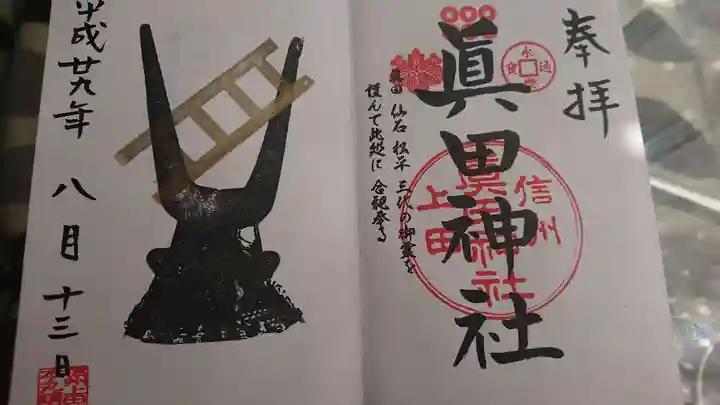 奉拝
眞田神社
信州
上田
眞田神社
永通
寳
眞田 仙石 松平 三代の御霊を
謹んで此処に 合祀奉る
平成廿九年 八月 十三日